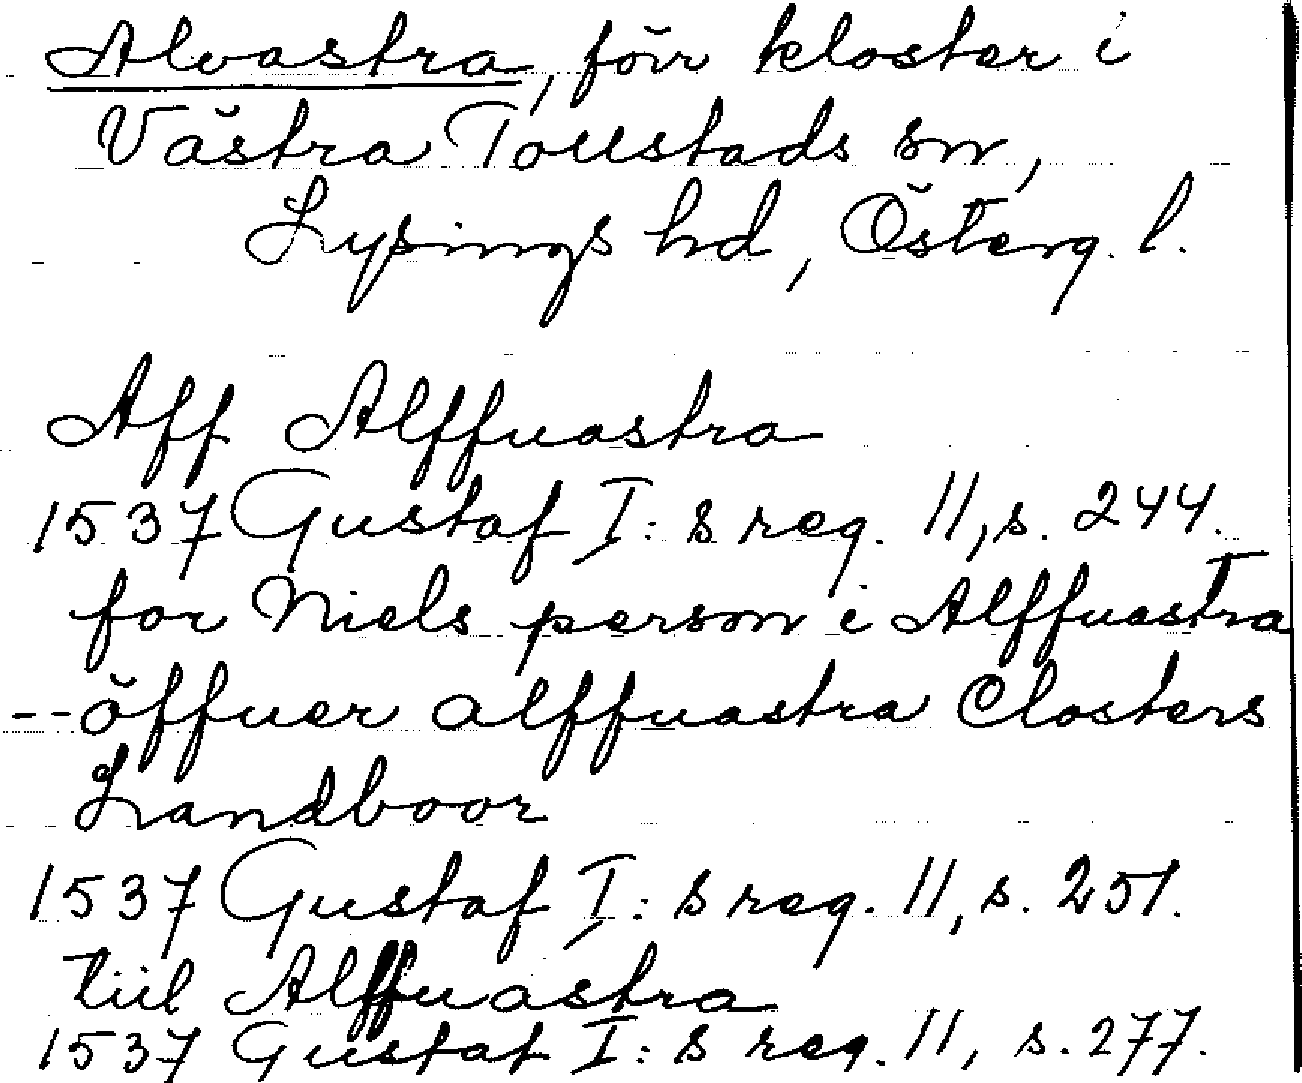 Alvastra, förr kloster i
Västra Tollstads sn,
Lysings hd, Österg. l.
Aff Alffuastra
1537 Gustaf I:s reg. 11, s. 244.
for Niels person i Alffuastra
--öffuer alffuastra Closters
Landboor
1537 Gustaf I:s reg. 11, s. 251.
tiil Alffuastra
1537 Gustaf I:s reg. 11, s. 277.